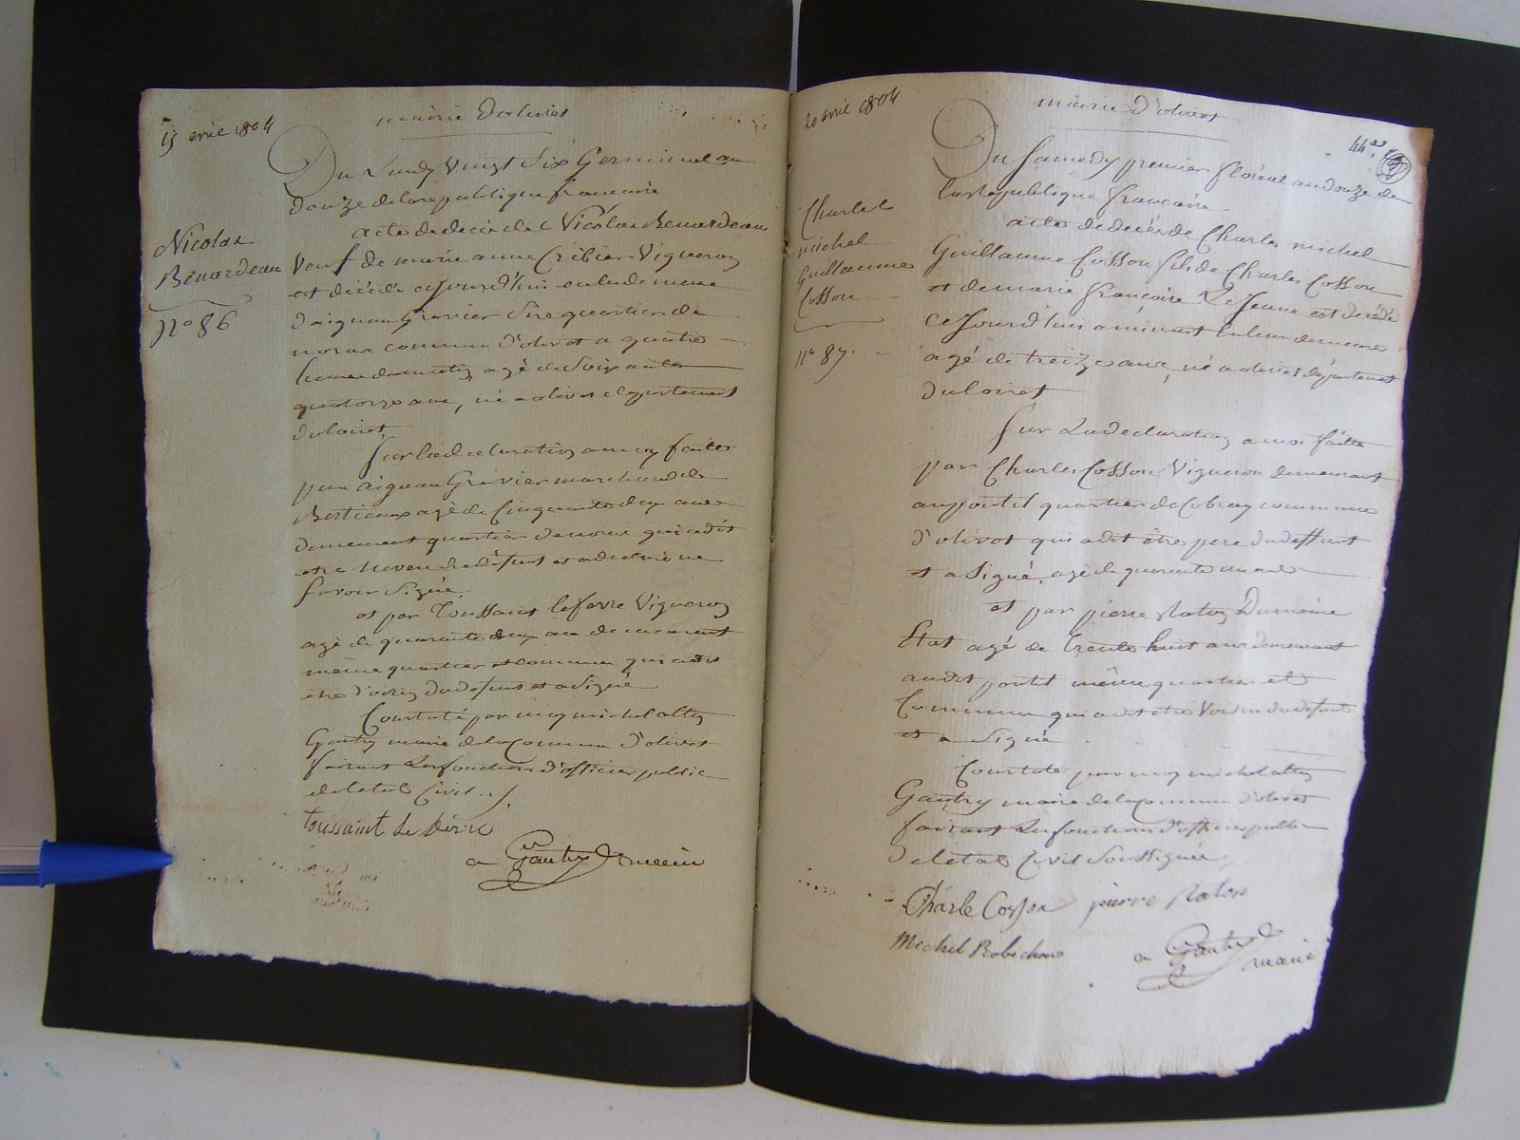 15 avril 1804
mairie d'olivet
Du Lundy Vingt Six Germinal an
douze de la republique francaise
acte de deces de Nicolas Benardeau
Veuf de marie anne Cribier Vigneron
est décédé cejourd'hui en la demeure
d'aignan Gravier Sise quartier de
commune d'olivet a quatre
heures du matin agé de Soixante
quatorze ans, né a olivet departement
du loiret
Nicolas
Benardeau
n° 86
Sur la declaration a moy faite
par aignan Gravier marchand de
Bestiaux agé de Cinquante deux ans
demeurant quartier de qui a dit
etre neveu du défunt et a declaré ne
savoir Signé.
et par Toussaint lefevre Vigneron
agé de quarante deux ans demeurant
même quartier et commune qui a dit
etre du defunt et a Signé
Constaté par moy michel
Gautry maire de la Commune d'olivet
faisant les fonctions d'officier public
de letat Civil
toussaint Le
Gautry maire
20 avril 1804
mairie d'olivet
Du Samedy premier floréal an douze de
la republique francaise
acte de decés de Charles michel
Guillaume Cosson fils de Charles Cosson
et de marie francoise Le Jeune est décédé
ce Jourd'huy a minuit en leur demeure
agé de treize ans, né a olivet département
du loiret
Charles
michel
Guillaume
Cosson
n° 87.
Sur La declaration a moi faite
par Charles Cosson Vigneron demeurant
au pontil quartier de commune
d'olivet qui a dit être pere du deffunt
et a Signé, agé de quarante un ans
et par pierre Domaine
Etat agé de trente huit ans demeurant
audit pontil même quartier et
Commune qui a dit etre Voisin du defunt
et a Signé
Constaté par moy michel
Gautry maire de la Commune d'olivet
faisant les fonctions d'officier public
de létat Civil Soussigné
Charle Cosson pierre
Michel Robichon
Gautry maire